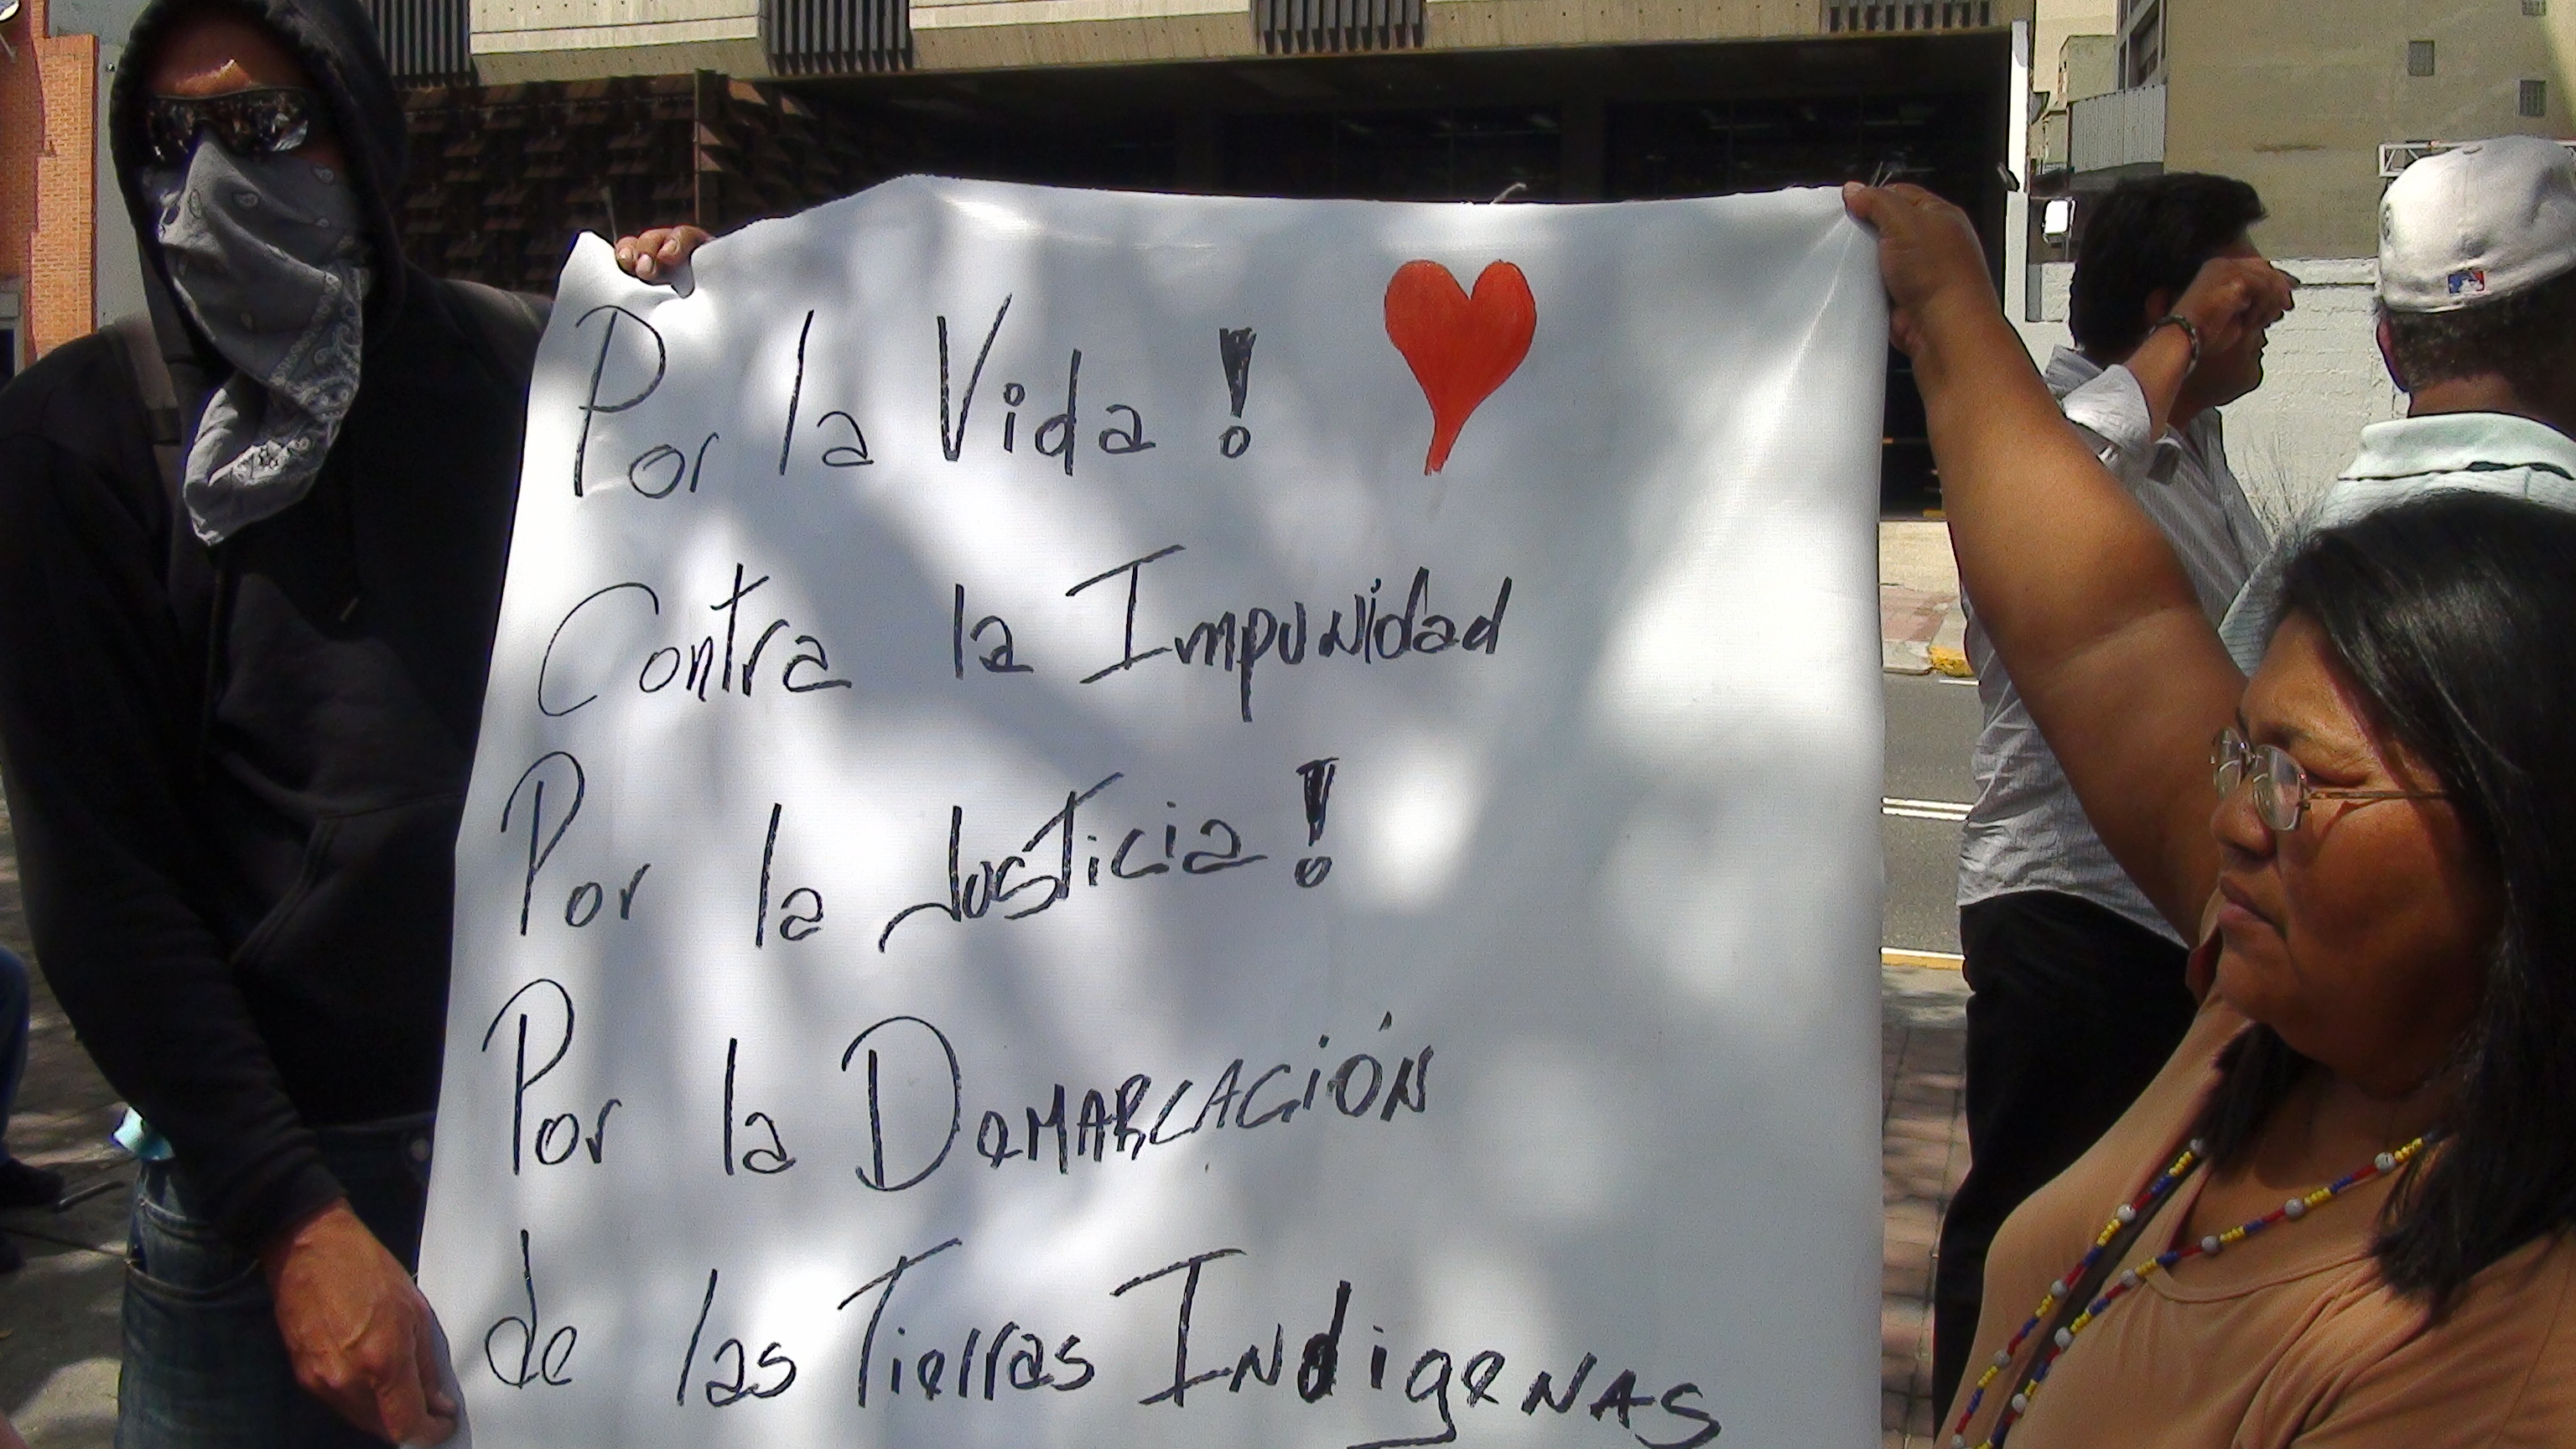 Por la Vida!
Contra la Impunidad
Por la Justicia!
Por la Demarcación
de las Tierras Indigenas